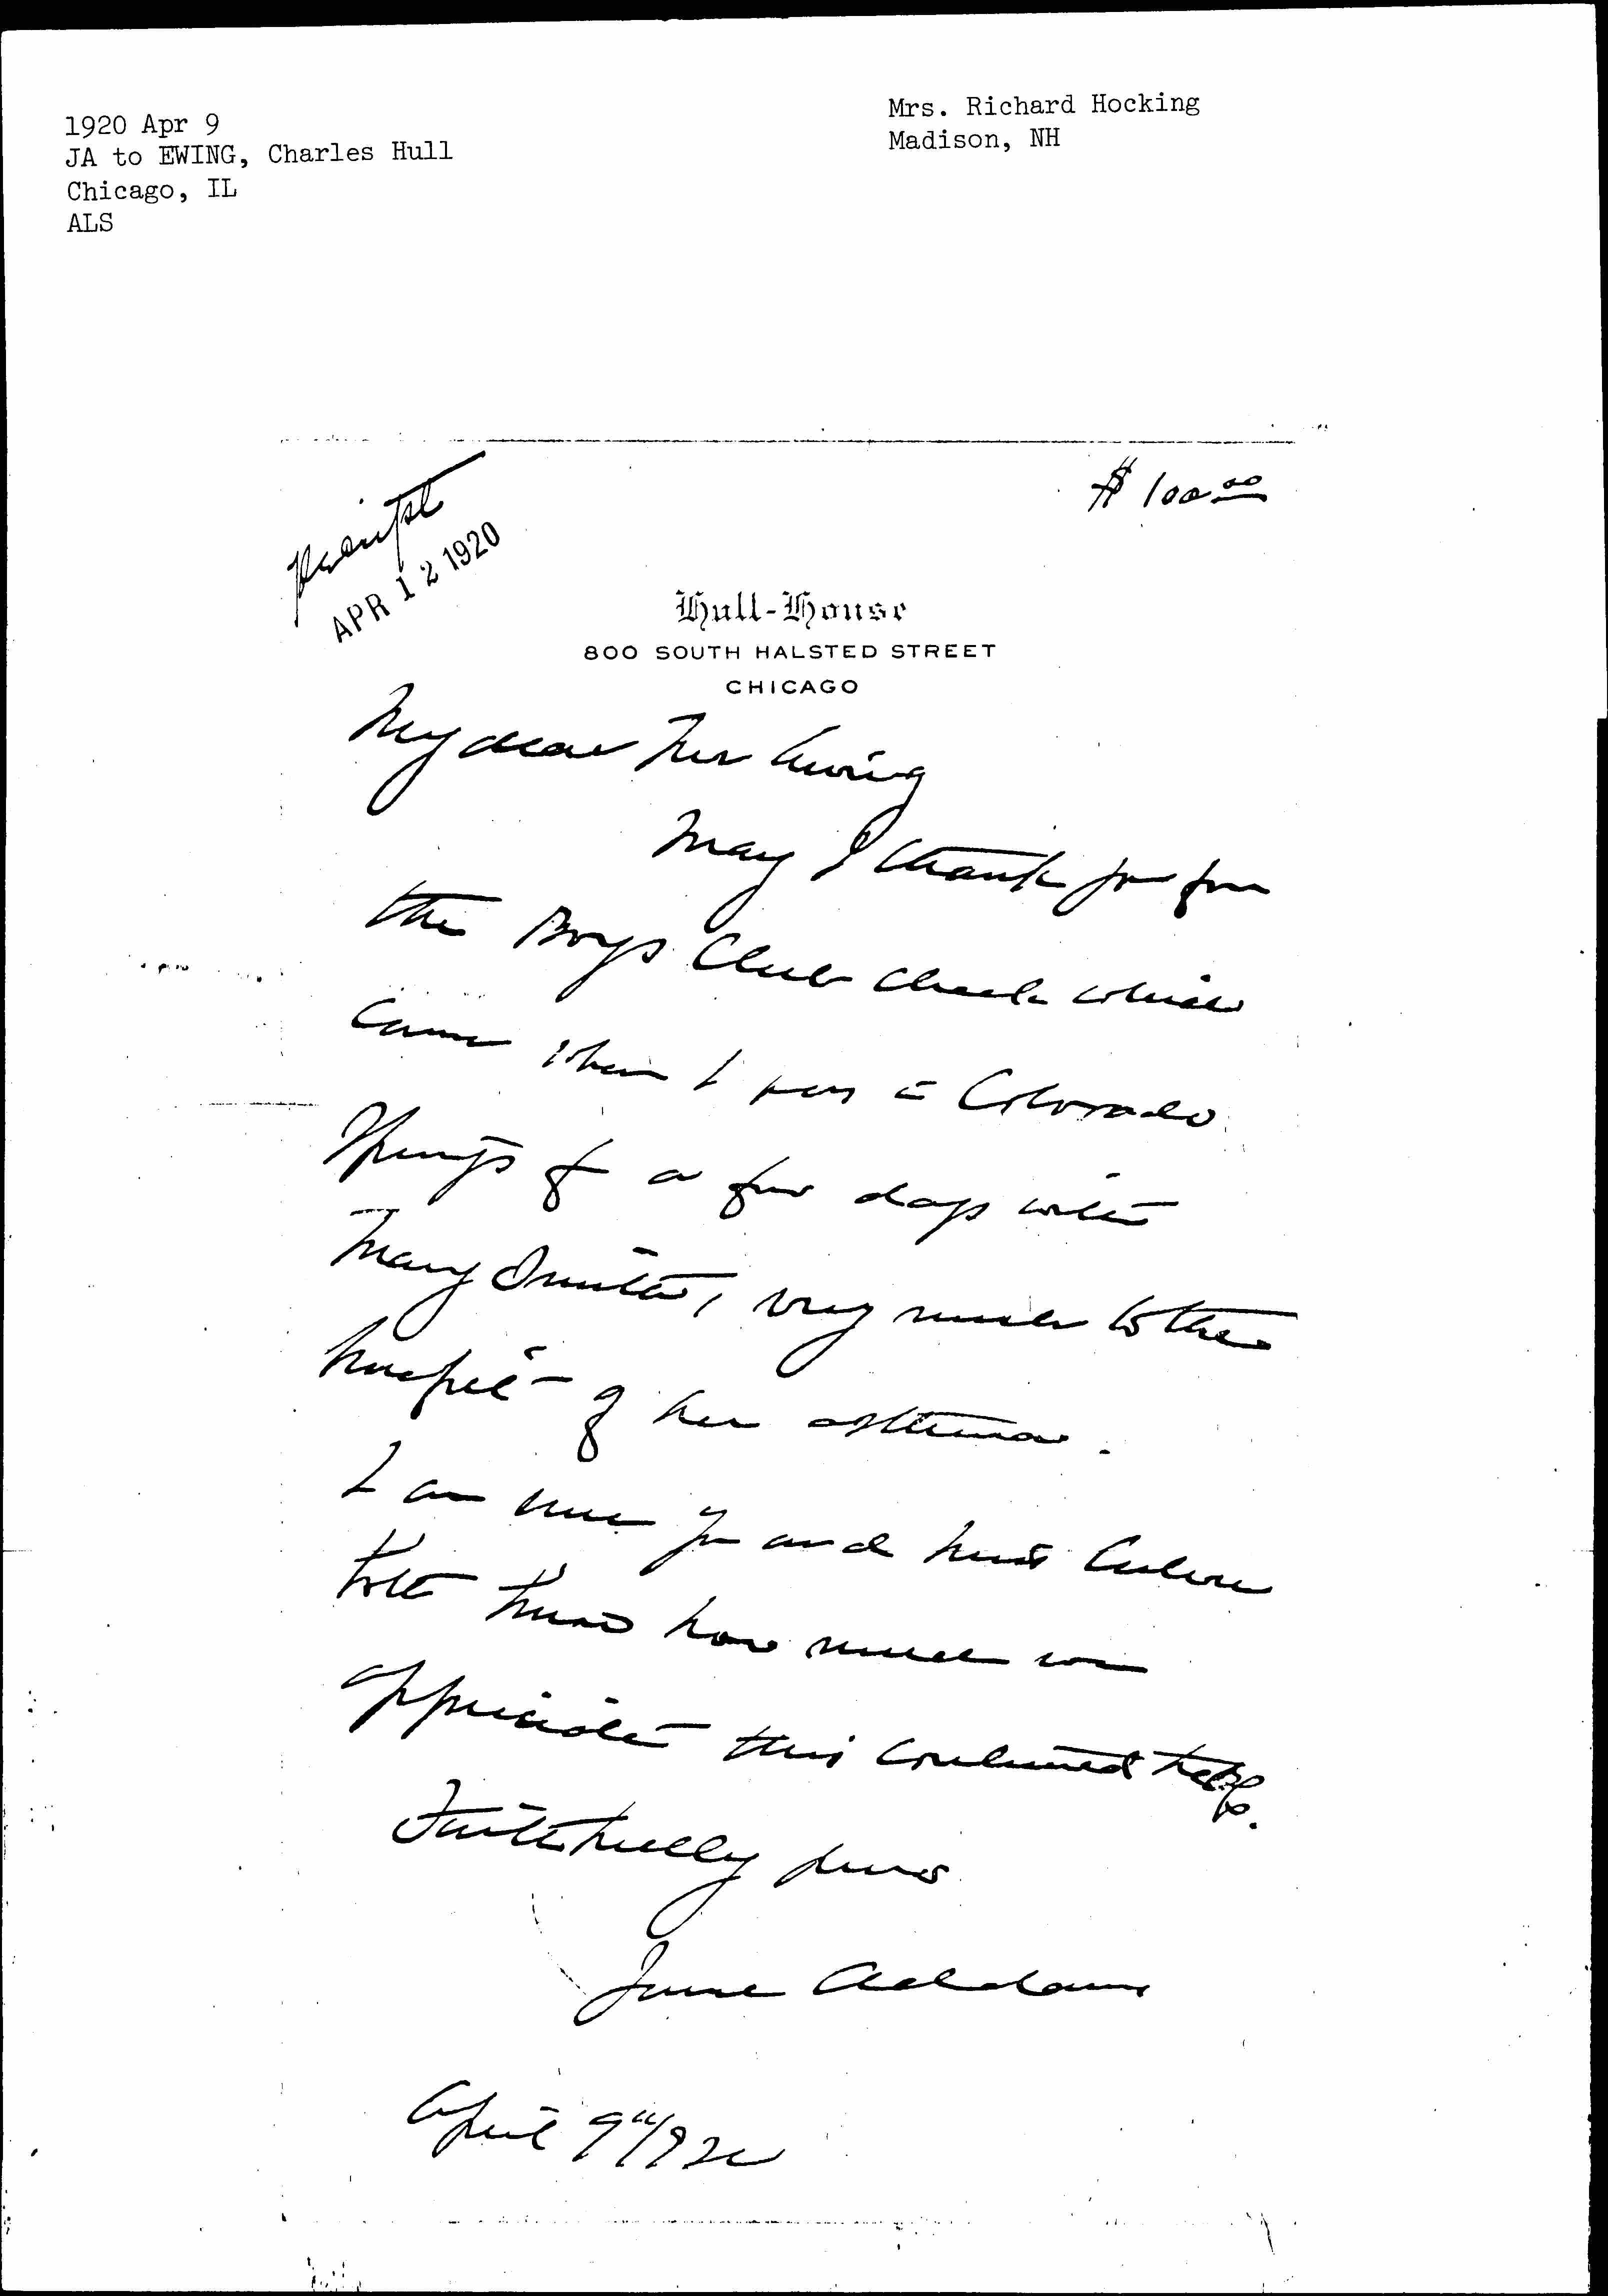 1920 Apr 9
JA to EWING, Charles Hull
Chicago, IL
ALS
Mrs. Richard Hocking
Madison, NH
$100.00
Receipt
APR 12 1920
Hull-House
800 SOUTH HALSTED STREET
CHICAGO
My dear Mr Ewing
May I thank you for
the Boys Club check which
came when I was in Colorado
Springs for a few days with
Mary Smith, very much to the
benefit of her asthma.
I am sure you and Miss Culver
both know how much we
appreciate this continued help.
Faithfully yours
Jane Addams
April 9" 1920